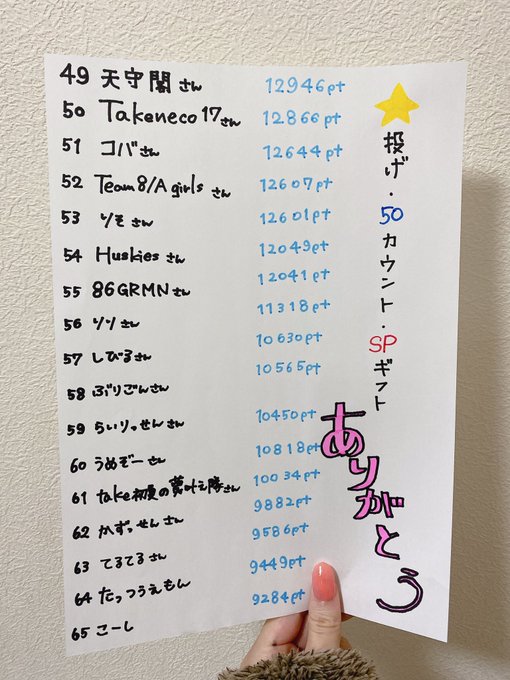 49 天守閣さん 12946pt
50 Takeneco17さん 12866pt
51 コバさん 12644pt
52 Team8/A girls さん 12607pt
53 りモさん 12601pt
54 Huskies さん 12049pt
55 86GRMNさん 12041pt
56 リリさん 11318pt
57 しびるさん 10630pt
58 ぶりごんさん 10565pt
59 らいりっせんさん 10450pt
60 うめぞーさん 10818pt
61 take初夏の夢叶え隊さん 10034pt
62 かずっせんさん 9882pt
63 てるてるさん 9586pt
64 たっつうえもん 9449pt
65 こーし 9284pt
投げ・50カウント・SPギフト
ありがとう